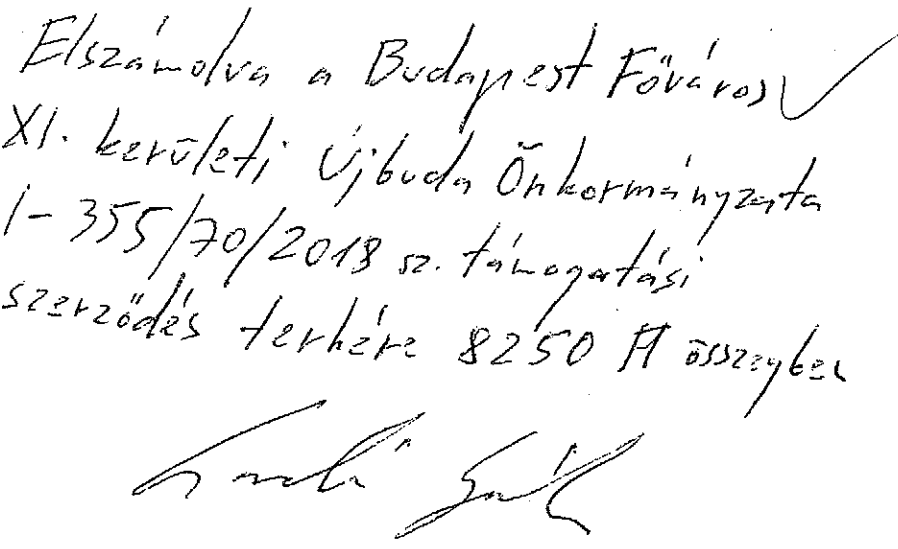 Elszámolva a Budapest Főváros
XI. kerületi Újbuda Önkormányzata
I-355/70/2018 sz. támogatási
szerződés terhére 8250 Ft összegben